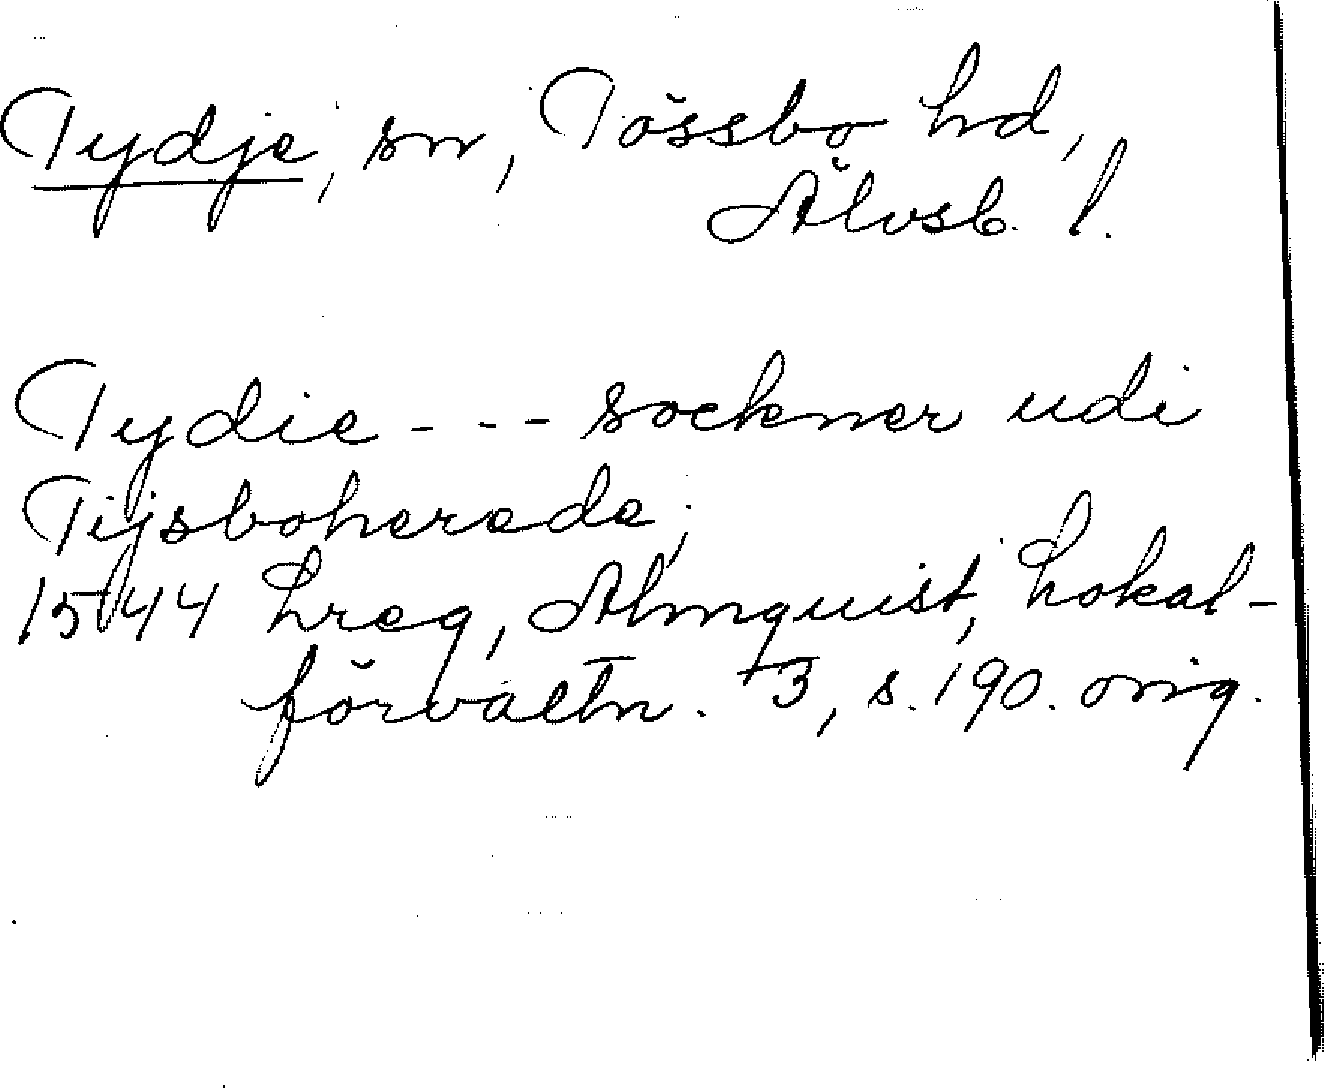 Tydje, sn, Tössbo hd,
Älvsb. l.
Tydie --- sockner udi
Tijsboherade,
1544 Lreg, Almquist, Lokal-
förvaltn. 3, s. 190. orig.